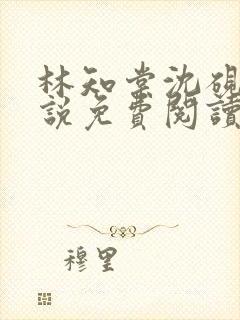 林知棠沈硯
說免費閱讀
穆里